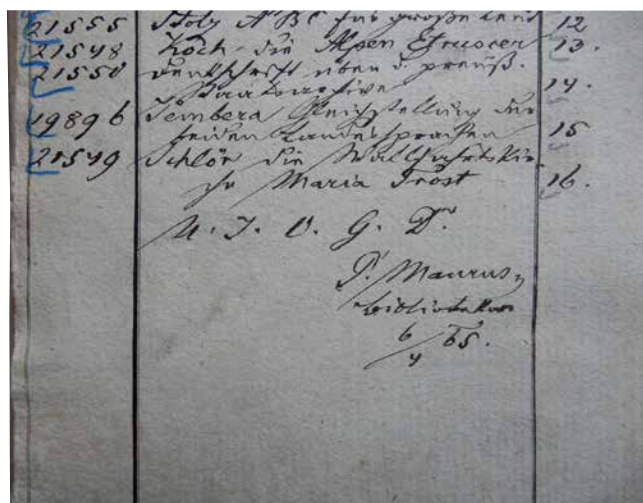 21555 Stolz A B C für große Leut 12
21548 Koch die Alpen Etrusker 13.
21550 Denkschrift über d. preuß.
Staatsarchive 14.
19896 Sembera Gleichstellung der
beiden Landessprachen 15
21549 Schlör die Wallfahrtskir
che Maria Trost 16.
U. I. O. G. D.
P. Maurus
Bibliothekar
6/4 65.